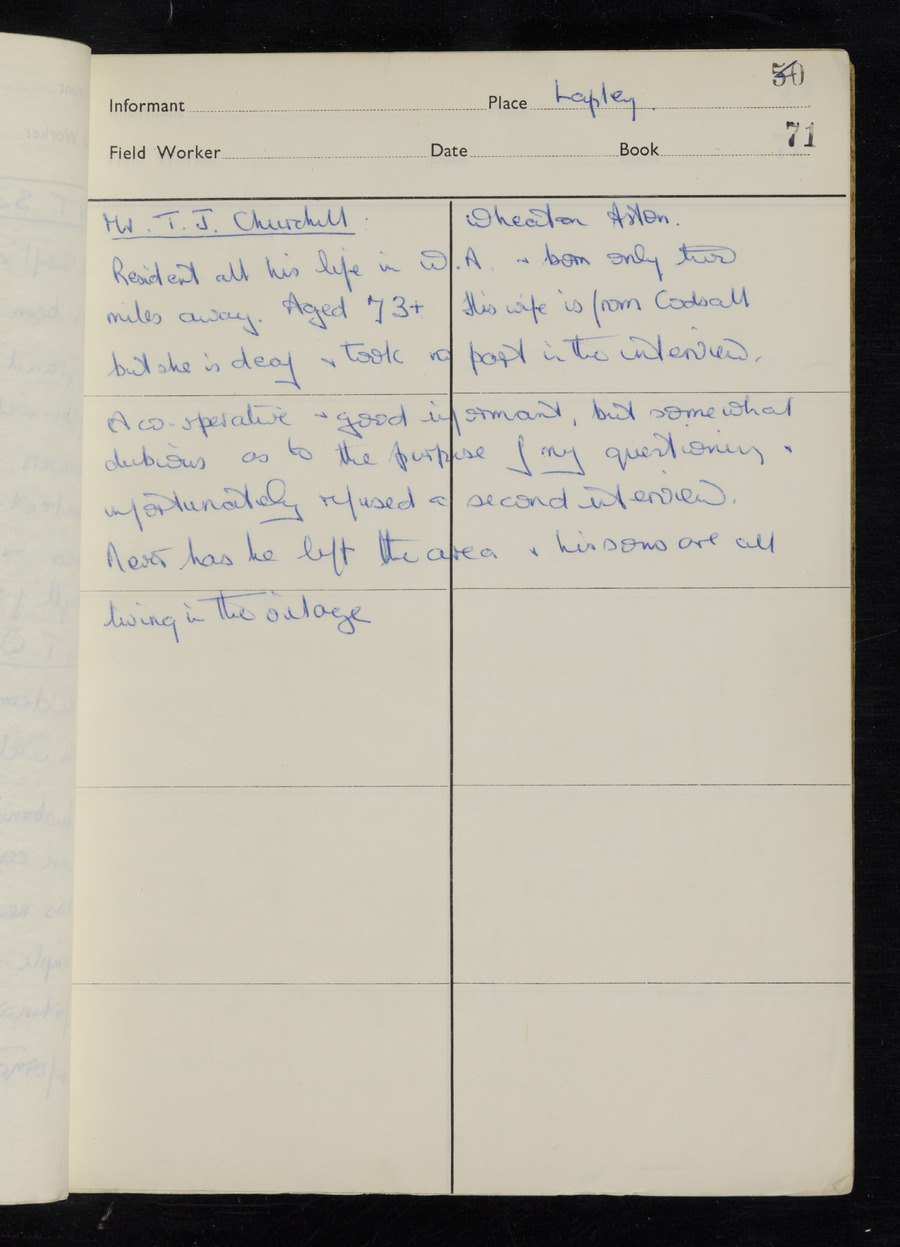 50
Informant Place Lapley.
71
Field Worker Date Book
Mr. T. J. Churchill. Wheaton Aston.
Resident all his life in W.A. & born only two
miles away. Aged 73+ His wife is from Codsall
but she is deaf & took no part in the interview.
A co-operative & good informant, but somewhat
dubious as to the purpose of my questioning &
unfortunately refused a second interview.
Never has he left the area & his sons are all
living in the village